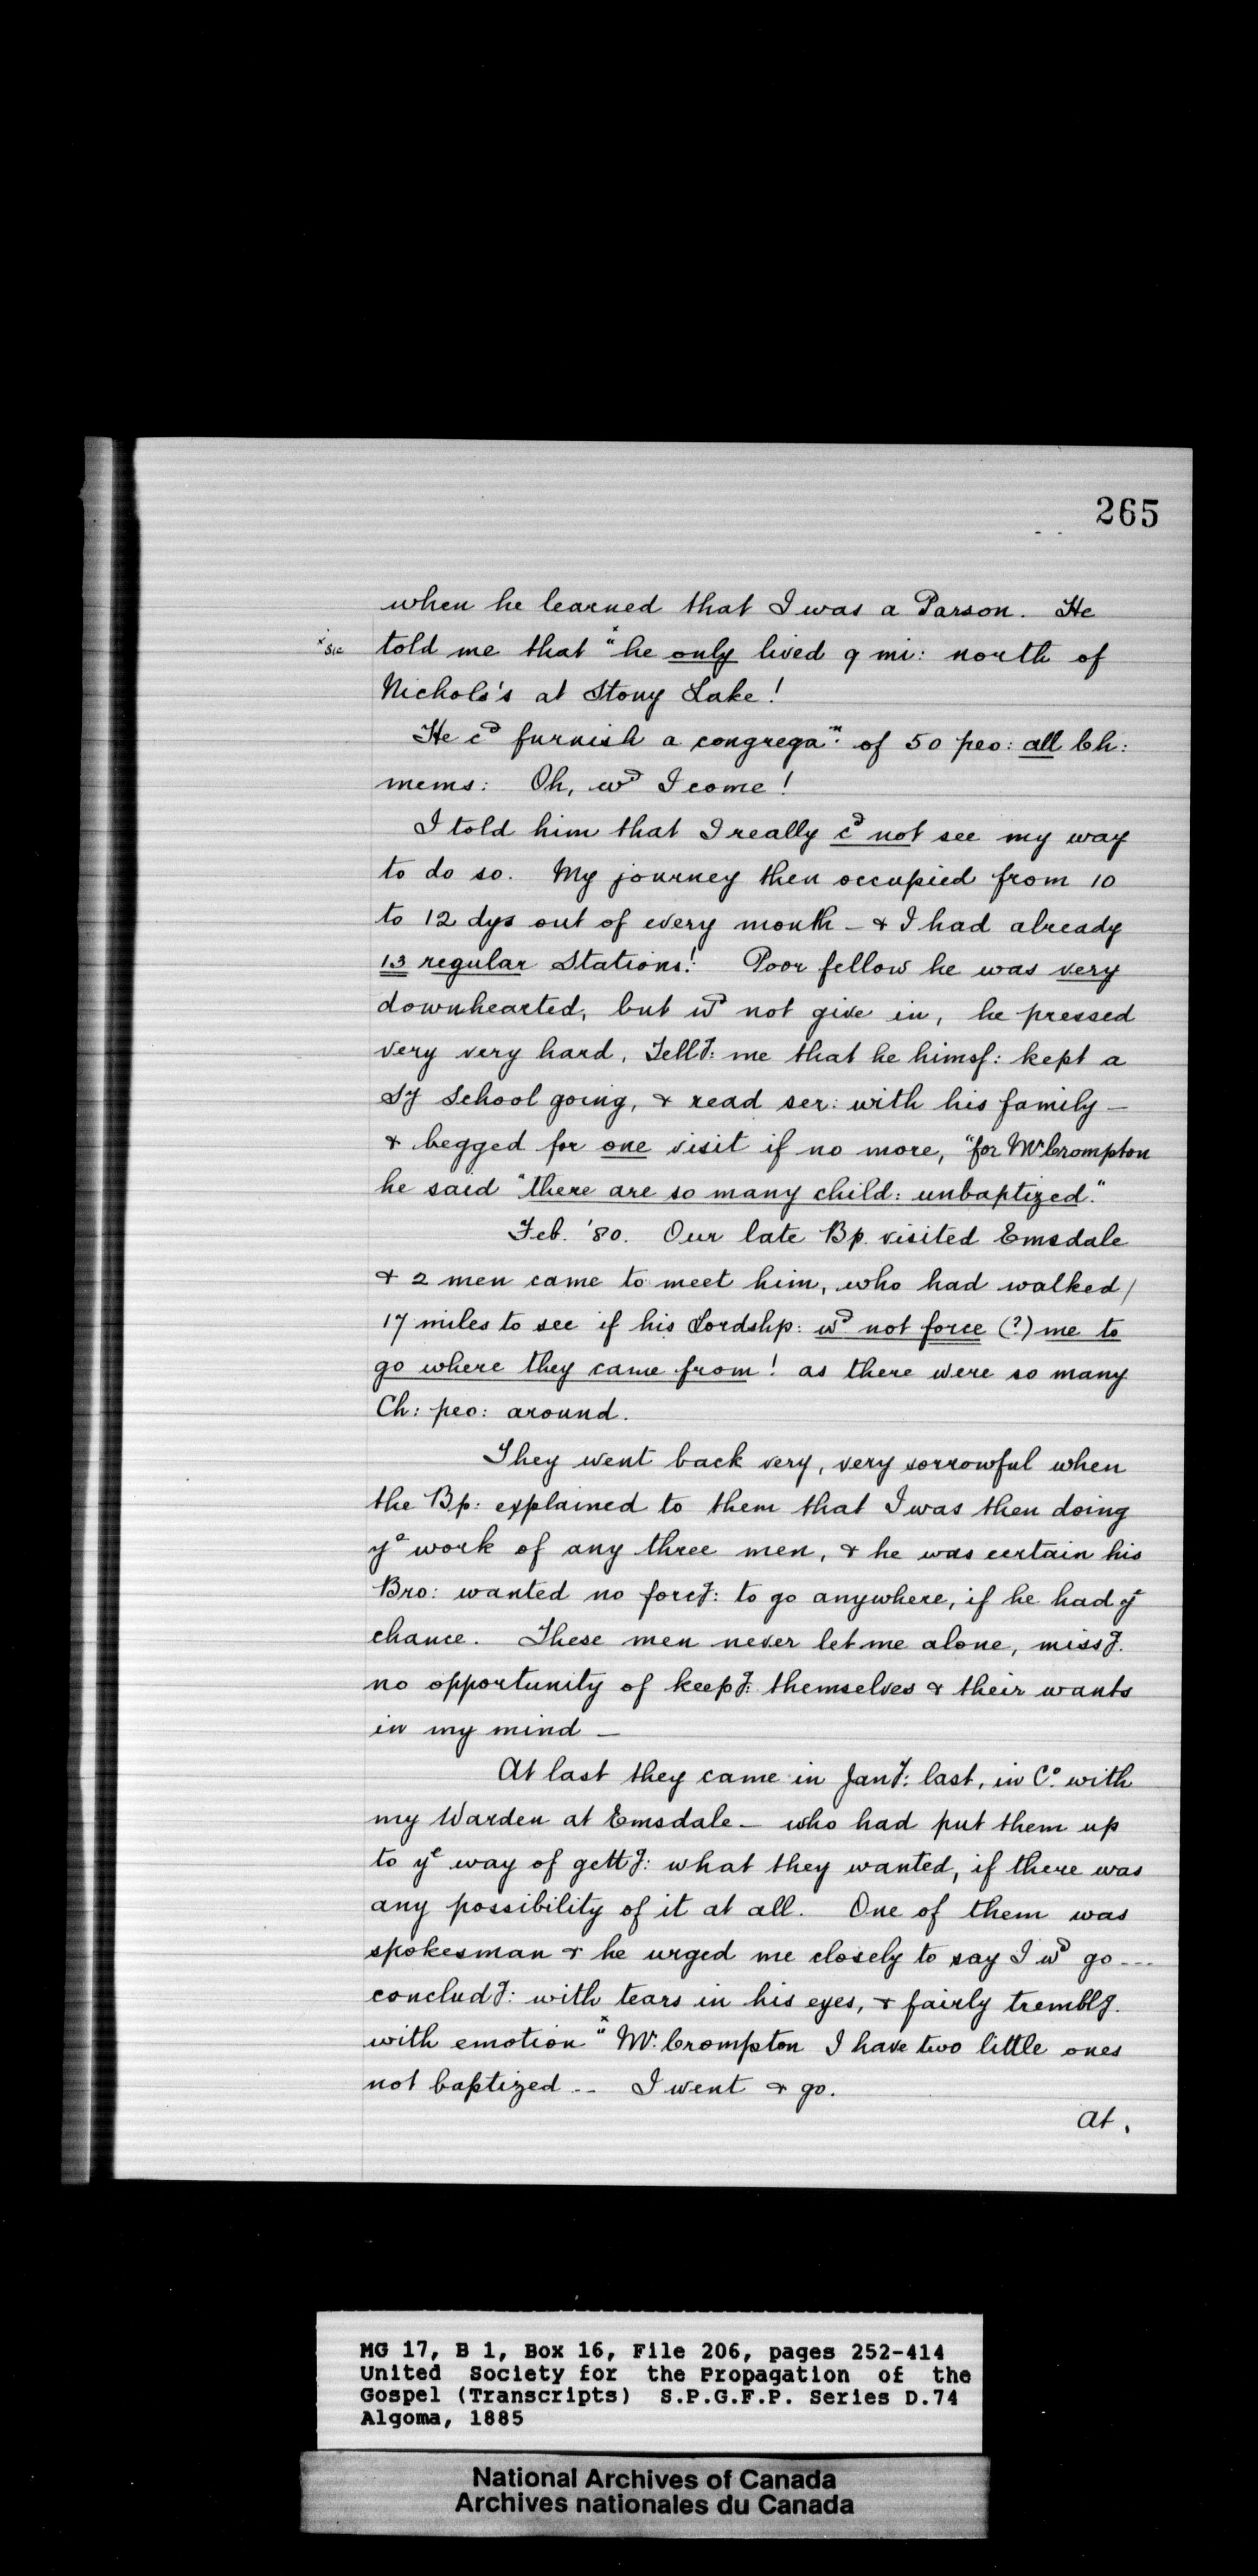 265
when he learned that I was a Parson. He
x sic told me that x"he only lived 9 mi: north of
Nichols's at Stony Lake!
He cd furnish a congregan: of 50 peo: all Ch:
mems: Oh, wd I come!
I told him that I really cd not see my way
to do so. My journey then occupied from 10
to 12 dys out of every month – & I had already
13 regular Stations! Poor fellow he was very
downhearted, but wd not give in, he pressed
very very hard, Tellg: me that he himsf: kept a
Sy School going, & read ser: with his family –
& begged for one visit if no more, "for Mr Crompton
he said "there are so many child: unbaptized."
Feb. '80. Our late Bp. visited Emsdale
& 2 men came to meet him, who had walked/
17 miles to see if his Lordshp: wd not force (?) me to
go where they came from! as there were so many
Ch: peo: around.
They went back very, very sorrowful when
the Bp: explained to them that I was then doing
ye work of any three men, & he was certain his
Bro: wanted no forcg: to go anywhere, if he had ye
chance. These men never let me alone, missg.
no opportunity of keepg: themselves & their wants
in my mind –
At last they came in Jany: last, in Co. with
my Warden at Emsdale – who had put them up
to ye way of gettg: what they wanted, if there was
any possibility of it at all. One of them was
spokesman & he urged me closely to say I wd go ---
concludg: with tears in his eyes, & fairly tremblg.
with emotion x" Mr. Crompton I have two little ones
not baptized -- I went & go.
At.
MG 17, B 1, Box 16, File 206, pages 252-414
United Society for the Propagation of the
Gospel (Transcripts) S.P.G.F.P. Series D.74
Algoma, 1885
National Archives of Canada
Archives nationales du Canada